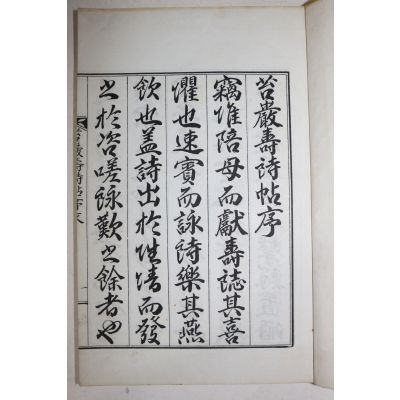 苔巖壽詩帖序
竊惟陪母而獻壽誌其喜
懼也速賓而詠詩樂其燕
飲也盖詩出於性情而發
之於咨嗟詠歎之餘者也
苔巖壽詩帖序文